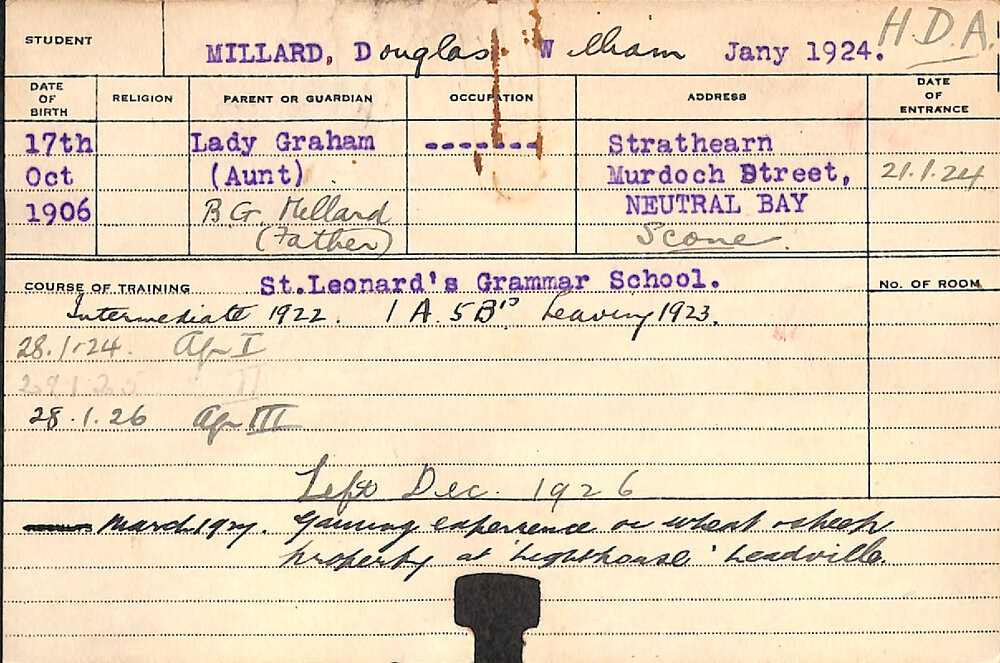 STUDENT MILLARD, Douglas William Jany 1924. H.D.A.
DATE OF BIRTH RELIGION PARENT OR GUARDIAN OCCUPATION ADDRESS DATE OF ENTRANCE
17th Lady Graham ------- Strathearn
Oct (Aunt) Murdoch Dtreet, 21.1.24
1906 B G Millard NEUTRAL BAY
(Father) Scone.
COURSE OF TRAINING St.Leonard's Grammar School. No. OF ROOM
Intermediate 1922. 1 A. 5 B's Leaving 1923.
28.1.24. Ag I
29.1.25 II
28.1.26 Ag III
Left Dec. 1926
March 1927. Gaining experience on wheat & sheep
property at 'Lighthouse' Leadville.